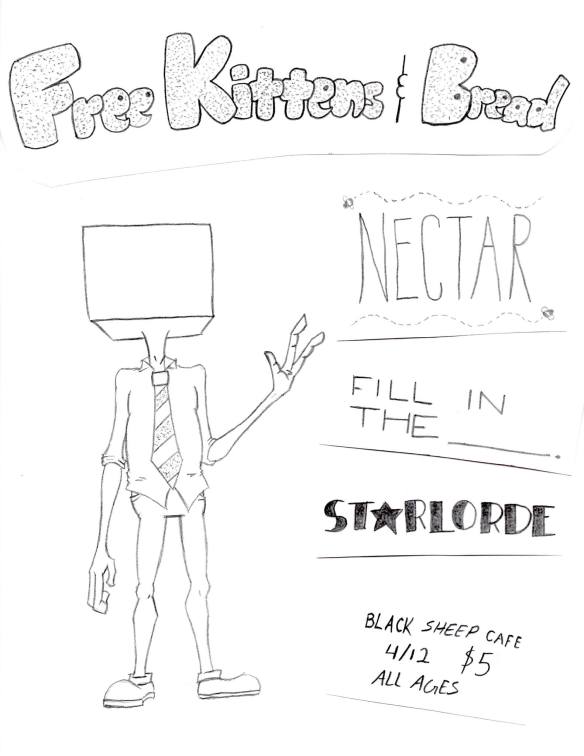 Free Kittens & Bread
NECTAR
FILL IN
THE ______.
ST★RLORDE
BLACK SHEEP CAFE
4/12 $5
ALL AGES